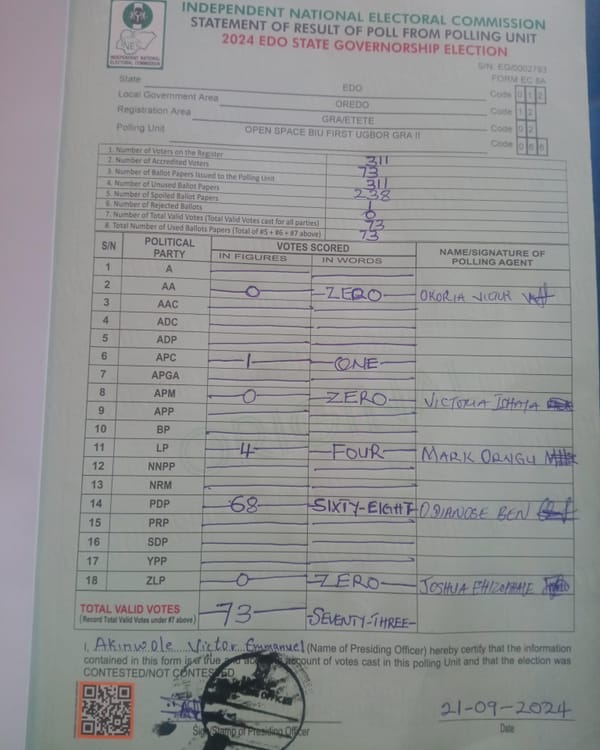 INDEPENDENT NATIONAL ELECTORAL COMMISSION
STATEMENT OF RESULT OF POLL FROM POLLING UNIT
2024 EDO STATE GOVERNORSHIP ELECTION
INEC
INDEPENDENT NATIONAL
ELECTORAL COMMISSION
S/N. EG/0002793
FORM EC 8A
State EDO Code 0 1 2
Local Government Area OREDO Code 1 2
Registration Area GRA/ETETE Code 0 2
Polling Unit OPEN SPACE BIU FIRST UGBOR GRA II Code 0 6 6
1. Number of Voters on the Register 311
2. Number of Accredited Voters 73
3. Number of Ballot Papers Issued to the Polling Unit 311
4. Number of Unused Ballot Papers 238
5. Number of Spoiled Ballot Papers 1
6. Number of Rejected Ballots 0
7. Number of Total Valid Votes (Total Valid Votes cast for all parties) 73
8. Total Number of Used Ballots Papers (Total of #5 + #6 + #7 above) 73
S/N POLITICAL PARTY VOTES SCORED NAME/SIGNATURE OF POLLING AGENT
IN FIGURES IN WORDS
1 A
2 AA 0 ZERO OKORIA
3 AAC
4 ADC
5 ADP
6 APC 1 ONE
7 APGA
8 APM 0 ZERO VICTORIA
9 APP
10 BP
11 LP 4 FOUR MARK
12 NNPP
13 NRM
14 PDP 68 SIXTY-EIGHT BEN
15 PRP
16 SDP
17 YPP
18 ZLP 0 ZERO JOSHUA
TOTAL VALID VOTES 73 SEVENTY-THREE
(Record Total Valid Votes under #7 above)
I, Akinwole Victor Emmanuel (Name of Presiding Officer) hereby certify that the information
contained in this form is a true and account of votes cast in this polling Unit and that the election was
CONTESTED/NOT CONTESTED
21-09-2024
Sign Stamp of Presiding Officer Date